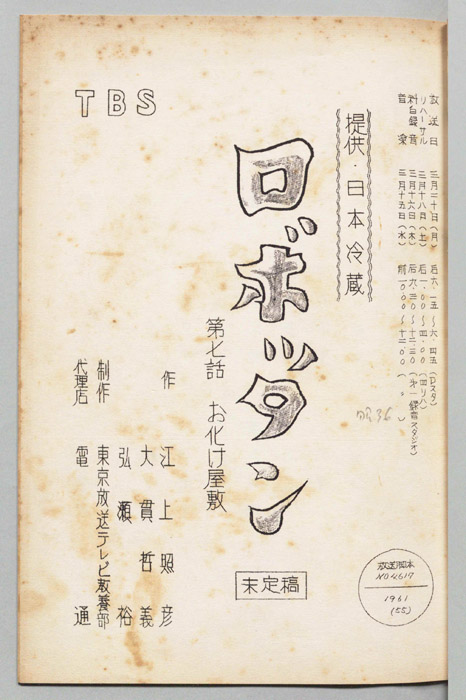 放送日 三月二十日(月) 后六・一五〜六・四五(Dスタ)
リハーサル 三月十八日(土) 后一・〇〇〜四・〇〇(四リハ)
三月十六日(木) 后六・三〇〜十二・三〇(第一録音スタジオ)
音楽 三月十五日(水) 前一〇・〇〇〜十二・〇〇(〃)
提供・日本冷蔵
TBS
ロボッタン
第七話 お化け屋敷
未定稿
作 江上照彦
大貫哲義
弘瀬裕
制作 東京放送テレビ教養部
代理店 電通
昭36
放送脚本
NO4617
1961
(55)